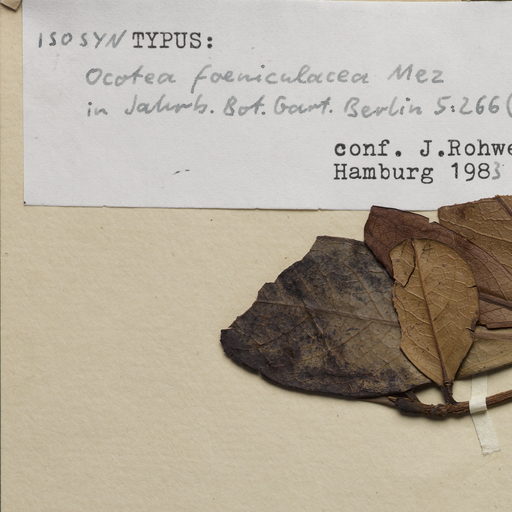 ISOSYN TYPUS:
Ocotea foeniculacea Mez
in Jahrb. Bot. Gart. Berlin 5:266 (
conf. J.Rohwe
Hamburg 1983